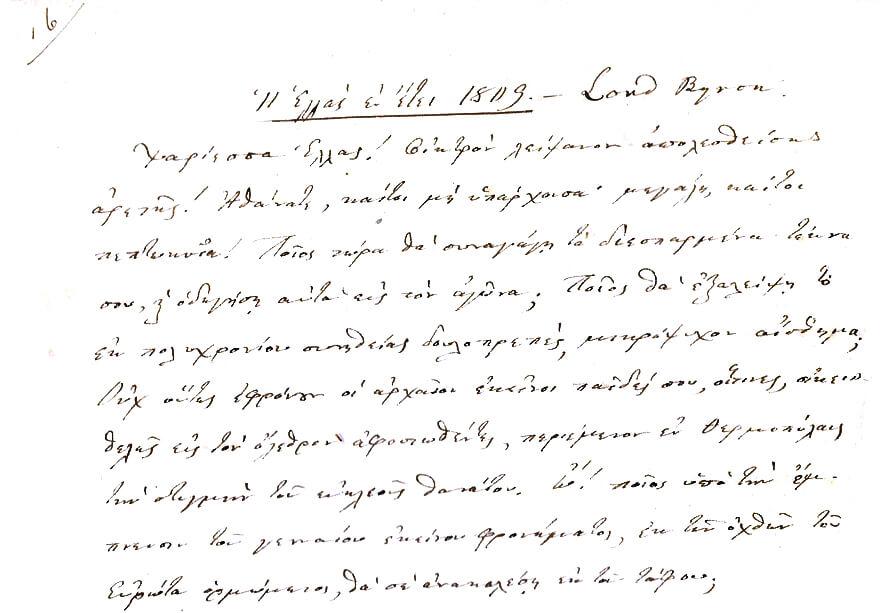 16
Ἡ Ἑλλὰς ἐν ἔτει 1809. — Lord Byron.
Χαρίεσσα Ἑλλάς! Οἰκτρὸν λείψανον ἀπολεσθείσης
ἀρετῆς! Ἀθάνατε, καίτοι μὴ ὑπάρχουσα· μεγάλη, καίτοι
πεπτωκυῖα! Ποῖος τώρα θὰ συναγάγῃ τὰ διεσπαρμένα τέκνα
σου, ἢ ὁδηγήσῃ αὐτὰ εἰς τὸν ἀγῶνα; Ποῖος θὰ ἐξαλείψῃ τὸ
ἐκ πολυχρονίου συνηθείας δουλοπρεπές, μικρόψυχον αἴσθημα;
Οὐχ οὕτως ἐφρόνουν οἱ ἀρχαῖοι ἐκεῖνοι παῖδές σου, οἵτινες, οἰκειο-
θελῶς εἰς τὸν ὄλεθρον ἀφοσιωθέντες, περιέμενον ἐν Θερμοπύλαις
τὴν στιγμὴν τοῦ εὐκλεοῦς θανάτου. Ὤ! ποῖος ὑπὸ τὴν ἔμ-
πνευσιν τοῦ γενναίου ἐκείνου φρονήματος, ἐκ τῶν ὀχθῶν τοῦ
Εὐρώτα ὁρμώμενος, θὰ σὲ ἀνακαλέσῃ ἐκ τοῦ τάφου;